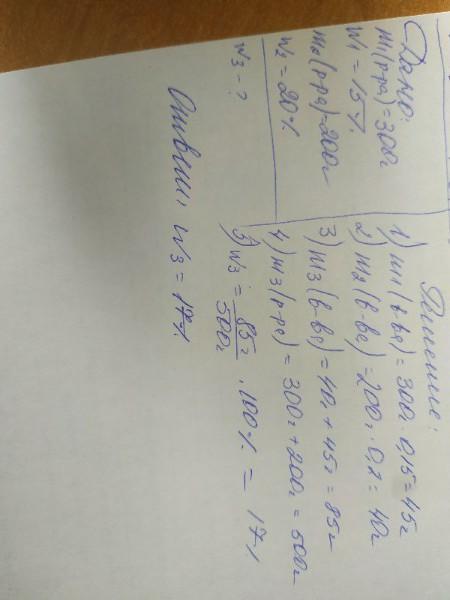 Дано:
m1(р-ра)=300г
w1=15%
m2(р-ра)=200г
w2=20%
w3-?
Решение:
1) m1(в-ва)=300г·0,15=45г
2) m2(в-ва)=200г·0,2=40г
3) m3(в-ва)=40г+45г=85г
4) m3(р-ра)=300г+200г=500г
5) w3=85г/500г·100%=17%
Ответ: w3=17%